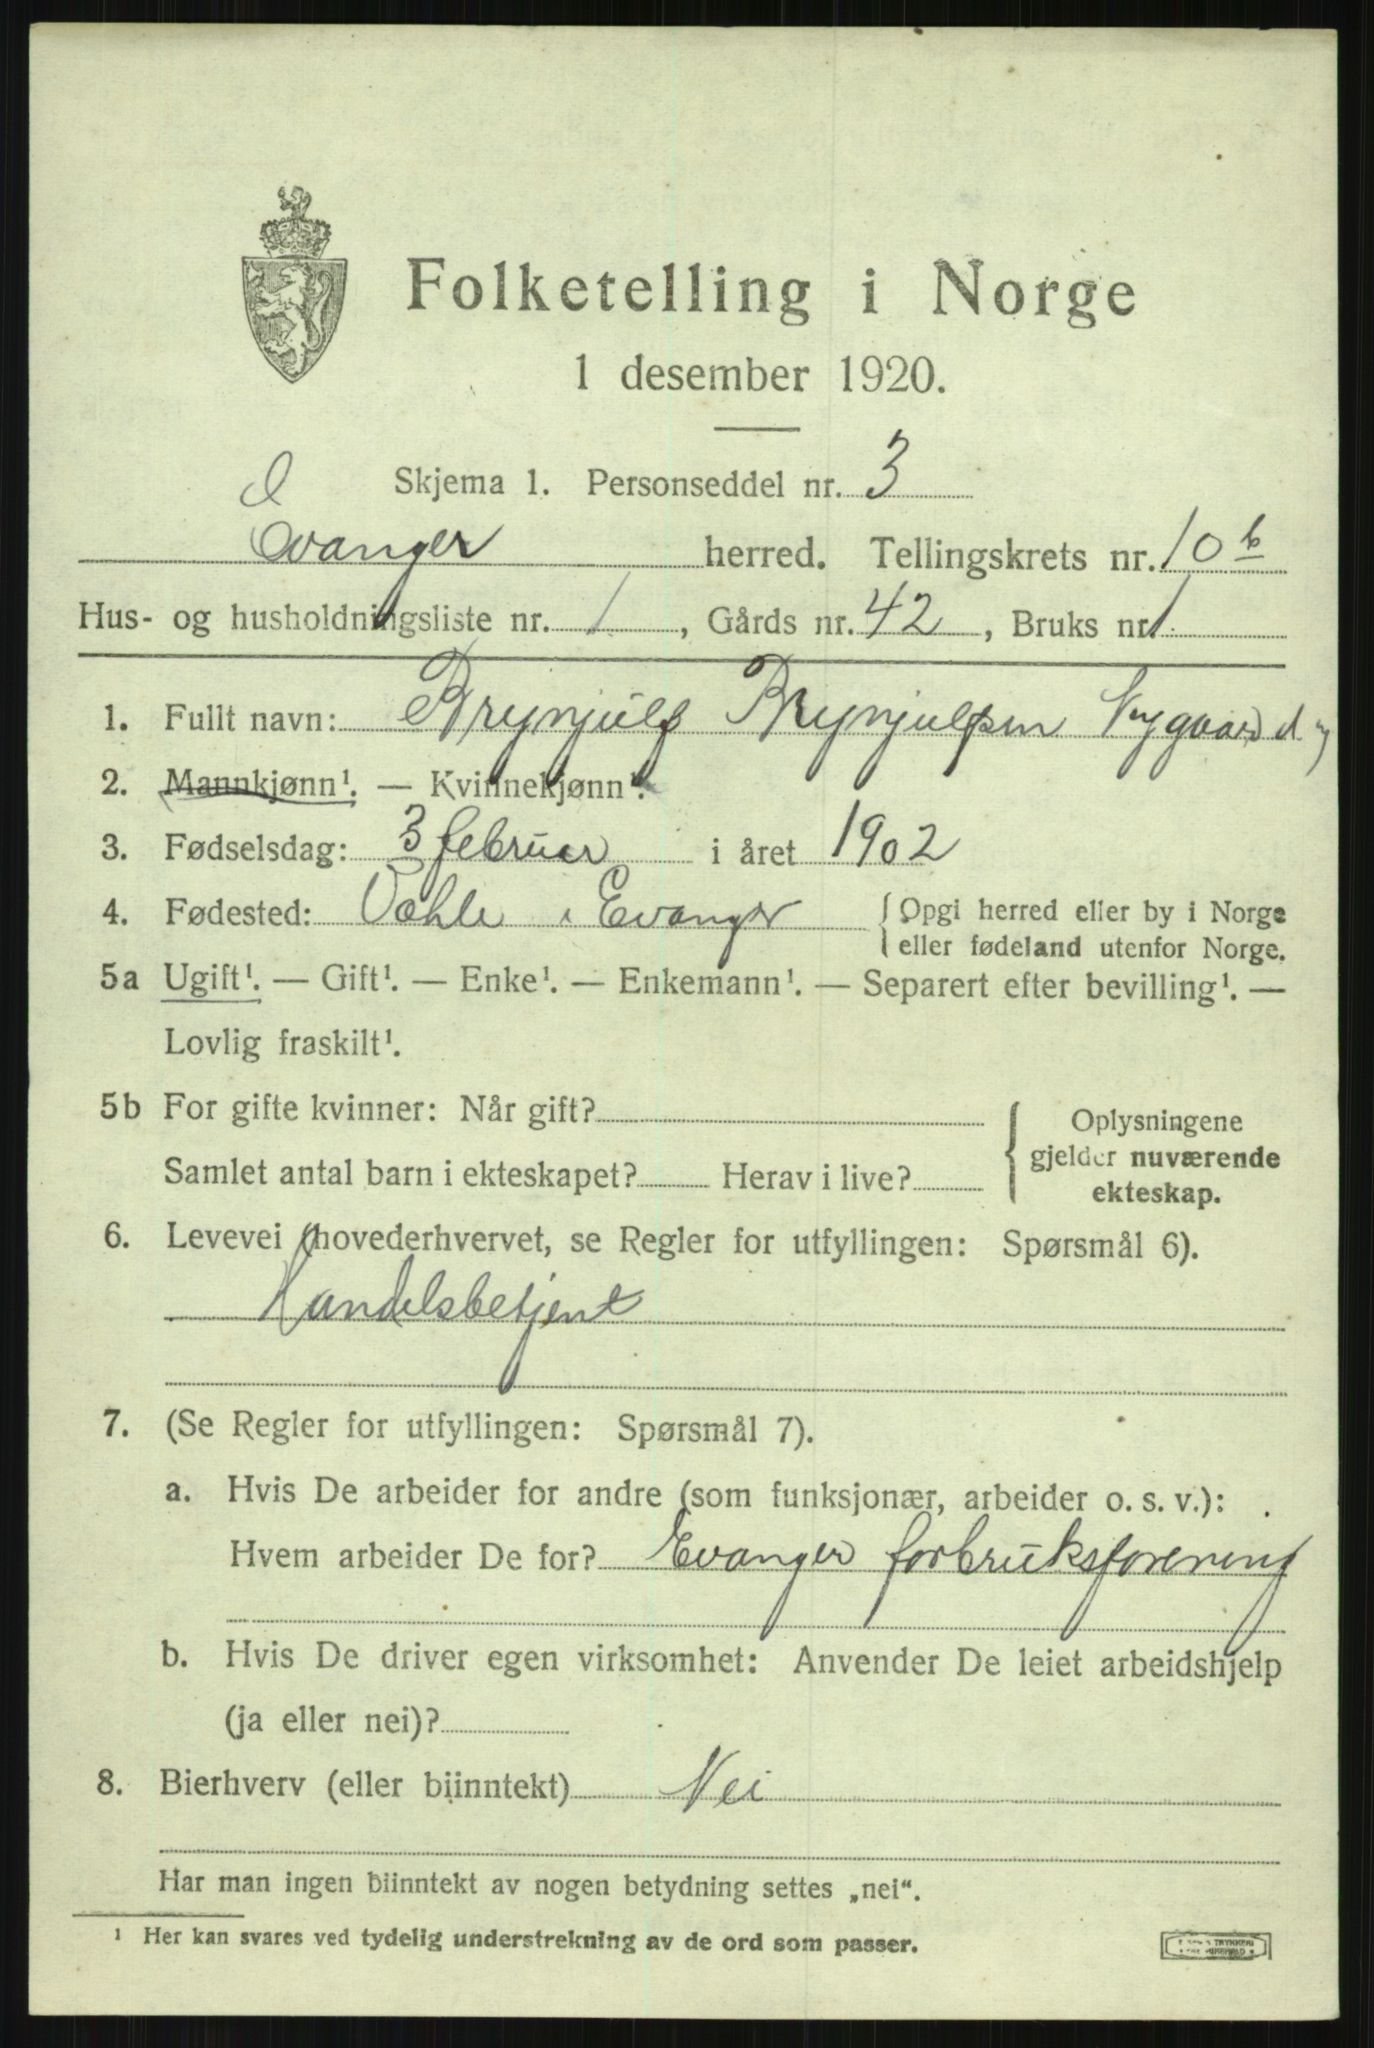 Folketelling i Norge
1 desember 1920.
Skjema 1. Personseddel nr. 3
Evanger herred. Tellingskrets nr. 10 b
Hus- og husholdningsliste nr. 1, Gårds nr. 42, Bruks nr. 1
1. Fullt navn: Brynjulf Brynjulfsen Nygaard
2. Mannkjønn¹. — Kvinnekjønn¹.
3. Fødselsdag: 3 februar i året 1902
4. Fødested: i Evanger {Opgi herred eller by i Norge
eller fødeland utenfor Norge.
5a Ugift¹. — Gift¹. — Enke¹. — Enkemann¹. — Separert efter bevilling¹. —
Lovlig fraskilt¹.
5b For gifte kvinner: Når gift? Oplysningene
gjelder nuværende
Samlet antal barn i ekteskapet? Herav i live?
ekteskap.
6. Levevei (hovederhvervet, se Regler for utfyllingen: Spørsmål 6).
Handelsbetjent
7. (Se Regler for utfyllingen: Spørsmål 7).
a. Hvis De arbeider for andre (som funksjonær, arbeider o. s. v.):
Hvem arbeider De for? Evanger forbruksforening
b. Hvis De driver egen virksomhet: Anvender De leiet arbeidshjelp
(ja eller nei)?
8. Bierhverv (eller biinntekt) Nei
Har man ingen biinntekt av nogen betydning settes „nei“.
¹ Her kan svares ved tydelig understrekning av de ord som passer.